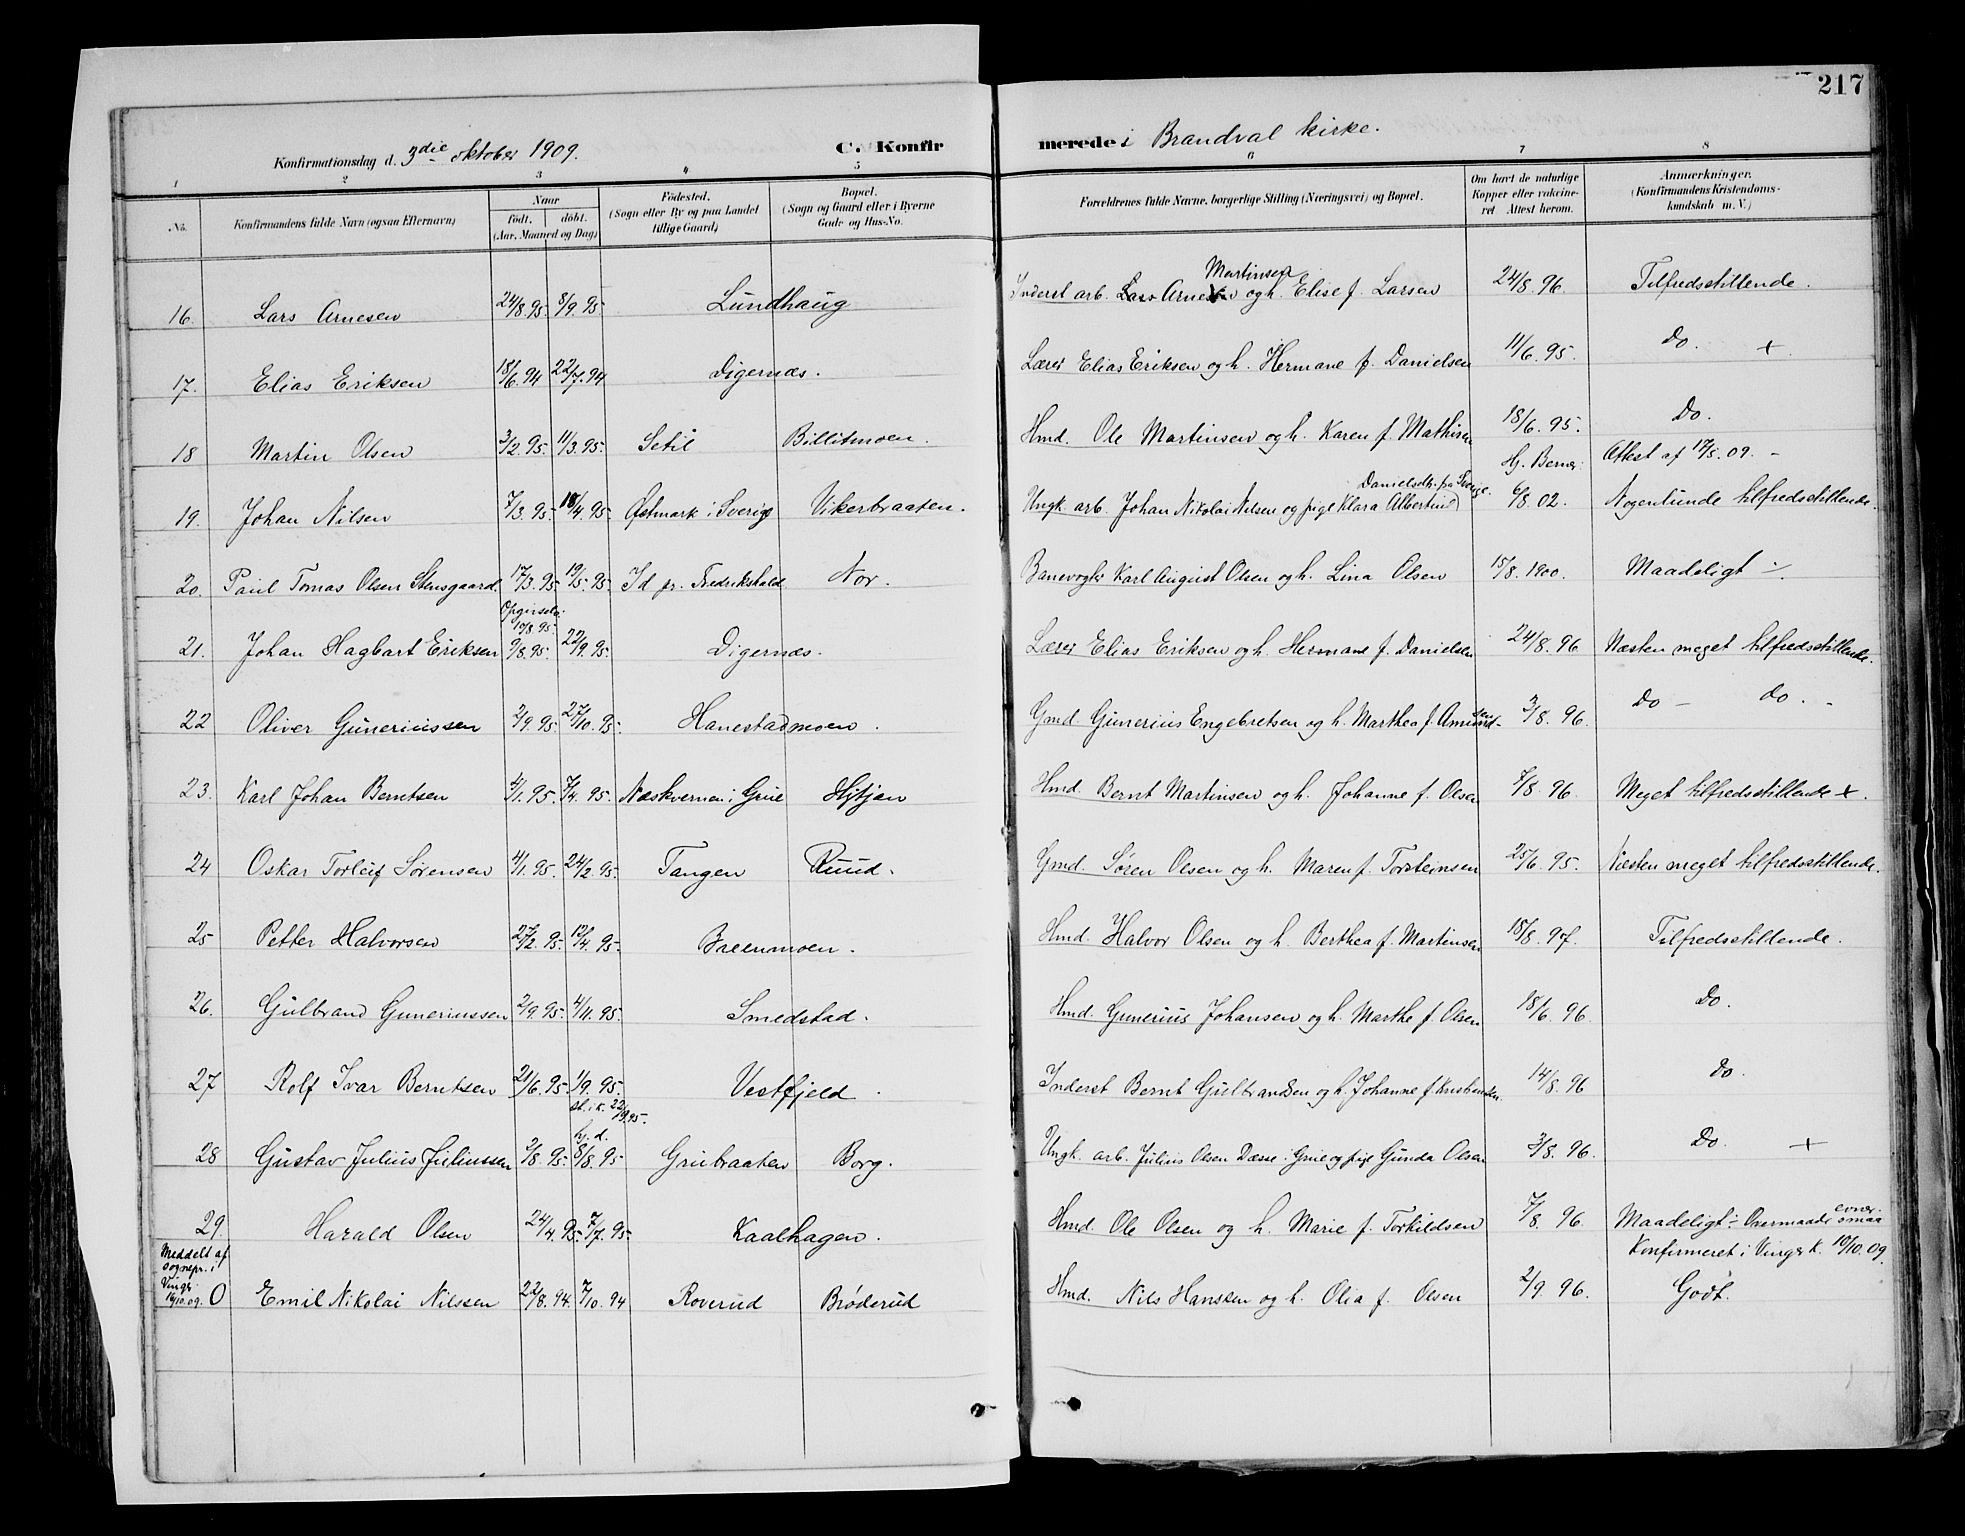 217
Konfirmationsdag d. 3die oktober 1909. C. Konfirmerede i Brandval kirke.
1 2 3 4 5 6 7 8
No. Konfirmandens fulde Navn (ogsaa Efternavn) Naar født. døbt. (Aar, Maaned og Dag) Fødested. (Sogn eller By og paa Landet tillige Gaard) Bopæl. (Sogn og Gaard eller i Byerne Gade og Hus-No. Forældrenes fulde Navne, borgerlige Stilling (Næringsvei) og Bopæl. Om havt de naturlige Kopper eller vakcineret Attest herom. Anmærkninger. (Konfirmandens Kristendomskundskab m. V.)
16. Lars Arnesen 24/8.95. 8/9.95. Lundhaug Inderst arb. Lars Martinsen og h. Elise f. Larsen 24/8.96. Tilfredsstillende.
17. Elias Eriksen 18/6.94 22/7.94 Digernæs. Lærer Elias Eriksen og h. Hermane f. Danielsen 11/6.95. Do. +
18 Martin Olsen 3/2.95. 11/3.95. Setil Billitmoen. Hmd. Ole Martinsen og h. Karen f. Mathisen 18/6.95. Do.
Hj. Berner: Attest af 17/5.09. -
19. Johan Nilsen 7/3.95. 18/4.95. Østmark i Sverige Vikerbraaten. Ungk. arb. Johan Nikolai Nilsen og pige Klara Albertine Danielsdtr. fra Sverige. 6/8.02. Nogenlunde tilfredsstillende.
20. Paul Tomas Olsen Stensgaard. 17/3.95. 19/5.95. Id pr. Fredrikshald Nor. Banevogter Karl August Olsen og h. Lina Olsen 15/8.1900. Maadeligt -:-
10/8.95.
21. Johan Hagbart Eriksen 9/8.95. 22/9.95. Digernæs. Lærer Elias Eriksen og h. Hermane f. Danielsen 24/8.96 Næsten meget tilfredsstillende.
22 Oliver Guneriussen 2/9.95. 27/10.95. Hanestadmoen. Gmd. Gunerius Engebretsen og h. Marthea f. Amundsen 3/8.96. do - do. -
23. Karl Johan Berntsen 4/1.95. 7/4.95. Næskvernen i Grue Hytjen Hmd. Bernt Martinsen og h. Johanne f. Olsen 7/8.96. Meget tilfredsstillende +.
24 Oskar Torleif Sørensen 4/1.95. 24/2.95. Tangen Ruud. Gmd. Søren Olsen og h. Maren f. Torsteinsen 25/6.95. Næsten meget tilfredsstillende.
25 Petter Halvorsen 27/2.95. 12/4.95. Ballenmoen. Hmd. Halvor Olsen og h. Berthea f. Martinsen 18/8.97. Tilfredsstillende.
26. Gulbrand Guneriussen 2/9.95. 4/11.95. Smedstad. Hmd. Gunerius Johansen og h. Marthe f. Olsen 18/6.96. Do.
27 Rolf Ivar Berntsen 21/6.95. 1/9.95. Vestfjeld. Inderst Bernt Gulbrandsen og h. Johanne f. Kristiansen. 14/8.96 Do.
st. i k. 22/9.95.
28 Gustav Julius Juliussen 2/8.95. hj. d. 8/8.95 Grubraaten Borg. Ungk. arb. Julius Olsen Dæsse i Grue og pige Gunda Olsen 3/8.96. Do. +
29. Harald Olsen 24/4.95. 7/7.95. Kaalhagen. Hmd. Ole Olsen og h. Marie f. Torkildsen 7/8.96. Maadeligt -:- Overmaade smaa evner.
Meddelt af sognepr. i Vinger 16/10.09. Konfirmeret i Vinger k. 10/10.09.
0 Emil Nikolai Nilssen 22/8.94. 7/10.94 Roverud Brøderud Hmd. Nils Hanssen og h. Olia f. Olsen 2/9.96. Godt.